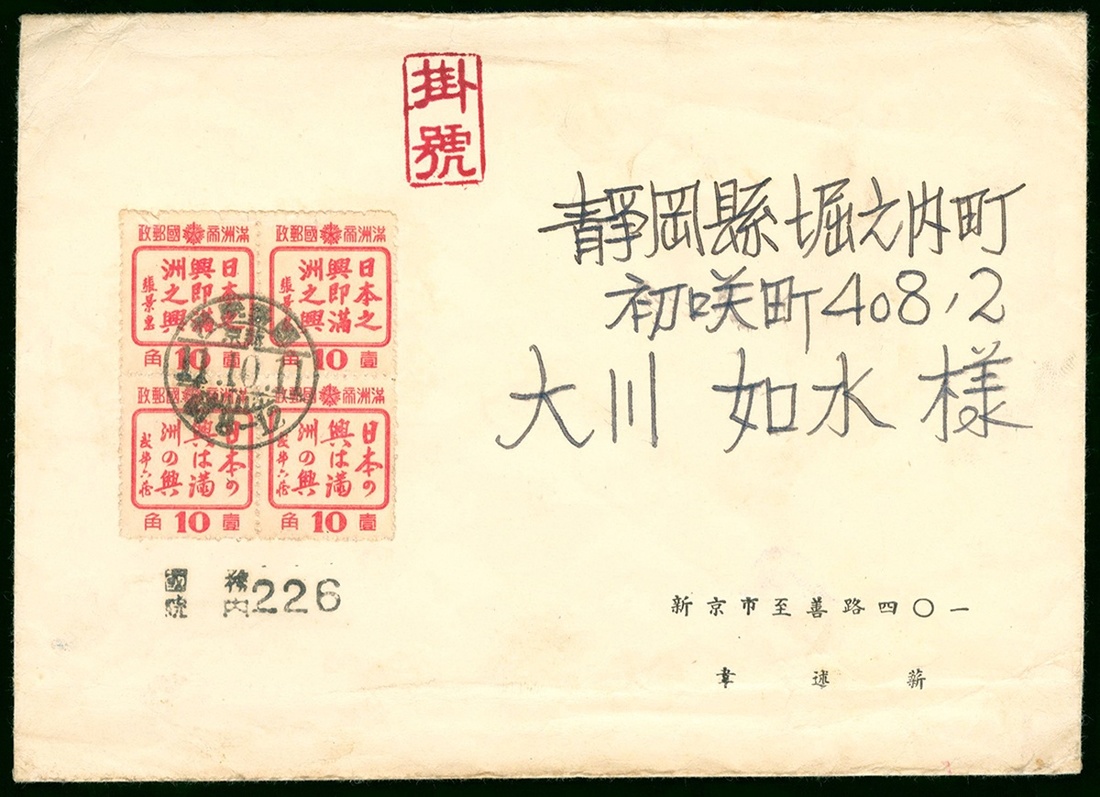 掛號
靜岡縣堀之內町
初咲町408,2
大川 如水 様
滿洲帝國郵政
日本之
興即滿
洲之興
張景惠
壹10角
滿洲帝國郵政
日本之
興即滿
洲之興
壹10角
滿洲帝國郵政
日本の
興は滿
洲の興
武部六藏
壹10角
滿洲帝國郵政
日本の
興は滿
洲の興
武部六藏
壹10角
.10.11
國院 構內 226
新京市至善路四〇一
韋述薪